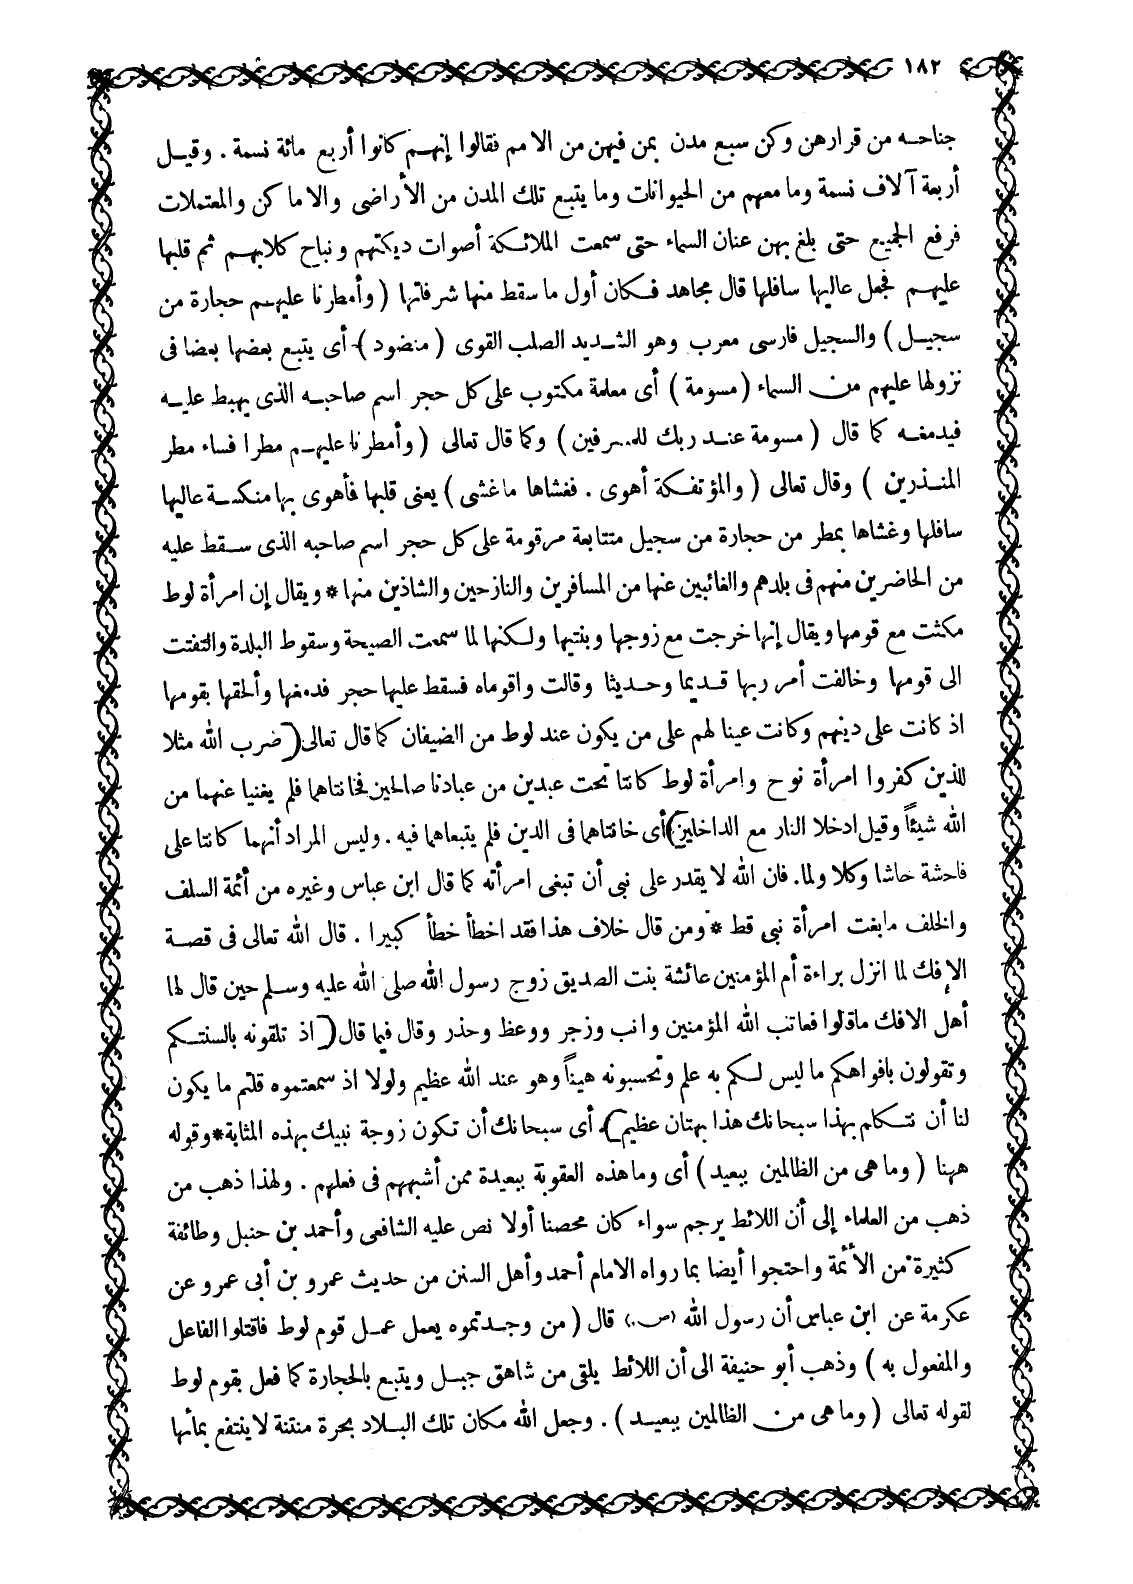 ١٨٢
جناحه من قرارهن وكن سبع مدن بمن فيهن من الامم فقالوا إنهم كانوا أربع مائة نسمة . وقيل
أربعة آلاف نسمة وما معهم من الحيوانات وما يتبع تلك المدن من الأراضى والاماكن والمعتملات
فرفع الجميع حتى بلغ بهن عنان السماء حتى سمعت الملائكة أصوات ديكتهم ونباح كلابهم ثم قلبها
عليهم فجعل عاليها سافلها قال مجاهد فكان أول ما سقط منها شرفاتها ( وأمطرنا عليهم حجارة من
سجيل ) والسجيل فارسى معرب وهو الشديد الصلب القوى ( منضود ) أى يتبع بعضها بعضا فى
نزولها عليهم من السماء ( مسومة ) أى معلمة مكتوب على كل حجر اسم صاحبه الذى يهبط عليه
فيدمغه كما قال ( مسومة عند ربك للمسرفين ) وكما قال تعالى ( وأمطرنا عليهم مطرا فساء مطر
المنذرين ) وقال تعالى ( والمؤتفكة أهوى . فغشاها ما غشى ) يعنى قلبها فأهوى بها منكسة عاليها
سافلها وغشاها بمطر من حجارة من سجيل متتابعة مرقومة على كل حجر اسم صاحبه الذى سقط عليه
من الحاضرين منهم فى بلدهم والغائبين عنها من المسافرين والنازحين والشاذين منها * ويقال إن امرأة لوط
مكثت مع قومها ويقال إنها خرجت مع زوجها وبنتيها ولكنها لما سمعت الصيحة وسقوط البلدة والتفتت
الى قومها وخالفت أمر ربها قديما وحديثا وقالت واقوماه فسقط عليها حجر فدمغها وألحقها بقومها
اذ كانت على دينهم وكانت عينا لهم على من يكون عند لوط من الضيفان كما قال تعالى ( ضرب الله مثلا
للذين كفروا امرأة نوح وامرأة لوط كانتا تحت عبدين من عبادنا صالحين فخانتاهما فلم يغنيا عنهما من
الله شيئاً وقيل ادخلا النار مع الداخلين ) أى خانتاهما فى الدين فلم يتبعاهما فيه . وليس المراد أنهما كانتا على
فاحشة حاشا وكلا ولما. فان الله لا يقدر على نبى أن تبغى امرأته كما قال ابن عباس وغيره من أئمة السلف
والخلف ما بغت امرأة نبى قط * ومن قال خلاف هذا فقد اخطأ خطأ كبيرا . قال الله تعالى فى قصة
الإفك لما انزل براءة أم المؤمنين عائشة بنت الصديق زوج رسول الله صلى الله عليه وسلم حين قال لها
أهل الافك ما قالوا فعاتب الله المؤمنين وانب وزجر ووعظ وحذر وقال فيما قال ( اذ تلقونه بالسنتكم
وتقولون بافواهكم ما ليس لكم به علم وتحسبونه هيناً وهو عند الله عظيم ولولا اذ سمعتموه قلتم ما يكون
لنا أن نتكلم بهذا سبحانك هذا بهتان عظيم ) أى سبحانك أن تكون زوجة نبيك بهذه المثابة * وقوله
ههنا ( وما هى من الظالمين ببعيد ) أى وما هذه العقوبة ببعيدة ممن أشبههم فى فعلهم . ولهذا ذهب من
ذهب من العلماء إلى أن اللائط يرجم سواء كان محصنا أولا نص عليه الشافعى وأحمد بن حنبل وطائفة
كثيرة من الأئمة واحتجوا أيضا بما رواه الامام أحمد وأهل السنن من حديث عمرو بن أبى عمرو عن
عكرمة عن ابن عباس أن رسول الله (ص) قال ( من وجدتموه يعمل عمل قوم لوط فاقتلوا الفاعل
والمفعول به ) وذهب أبو حنيفة الى أن اللائط يلقى من شاهق جبل ويتبع بالحجارة كما فعل بقوم لوط
لقوله تعالى ( وما هى من الظالمين ببعيد ) . وجعل الله مكان تلك البلاد بحرة منتنة لا ينتفع بمائها